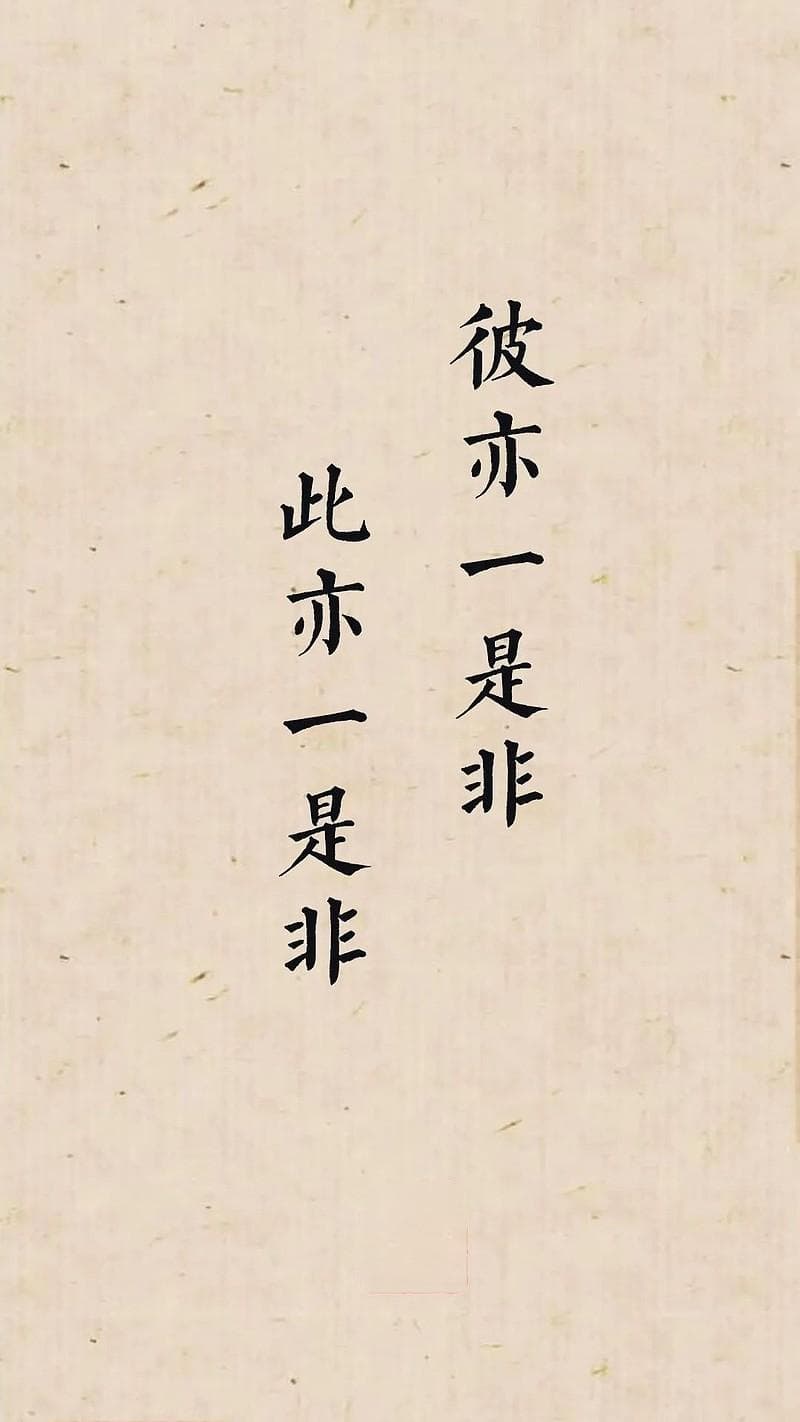 彼亦一是非
此亦一是非